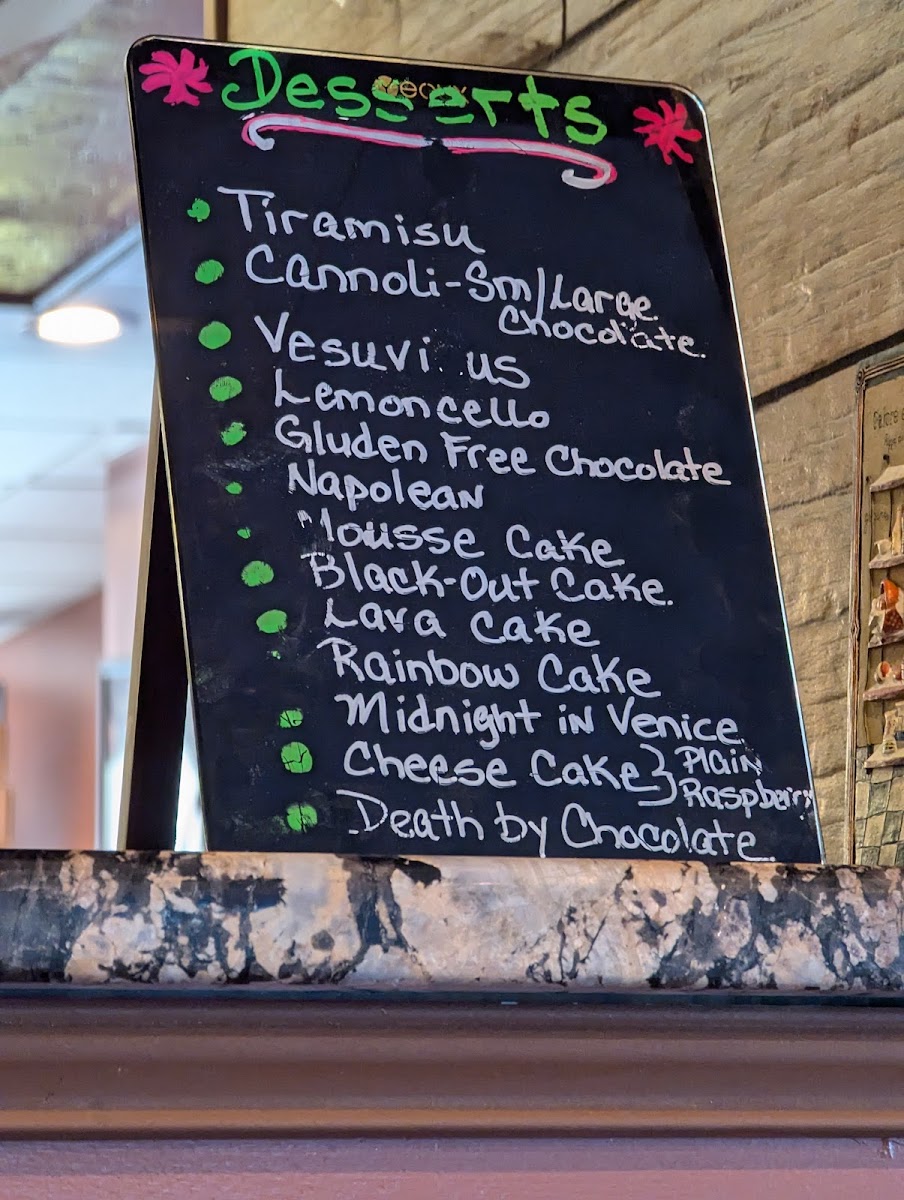 Desserts
Tiramisu
Cannoli-Sm/Large
Chocolate.
Vesuvi us
Lemoncello
Gluden Free Chocolate
Napolean
Mousse Cake
Black-Out Cake.
Lava Cake
Rainbow Cake
Midnight in Venice.
Cheese Cake } Plain
Raspberry
Death by Chocolate.